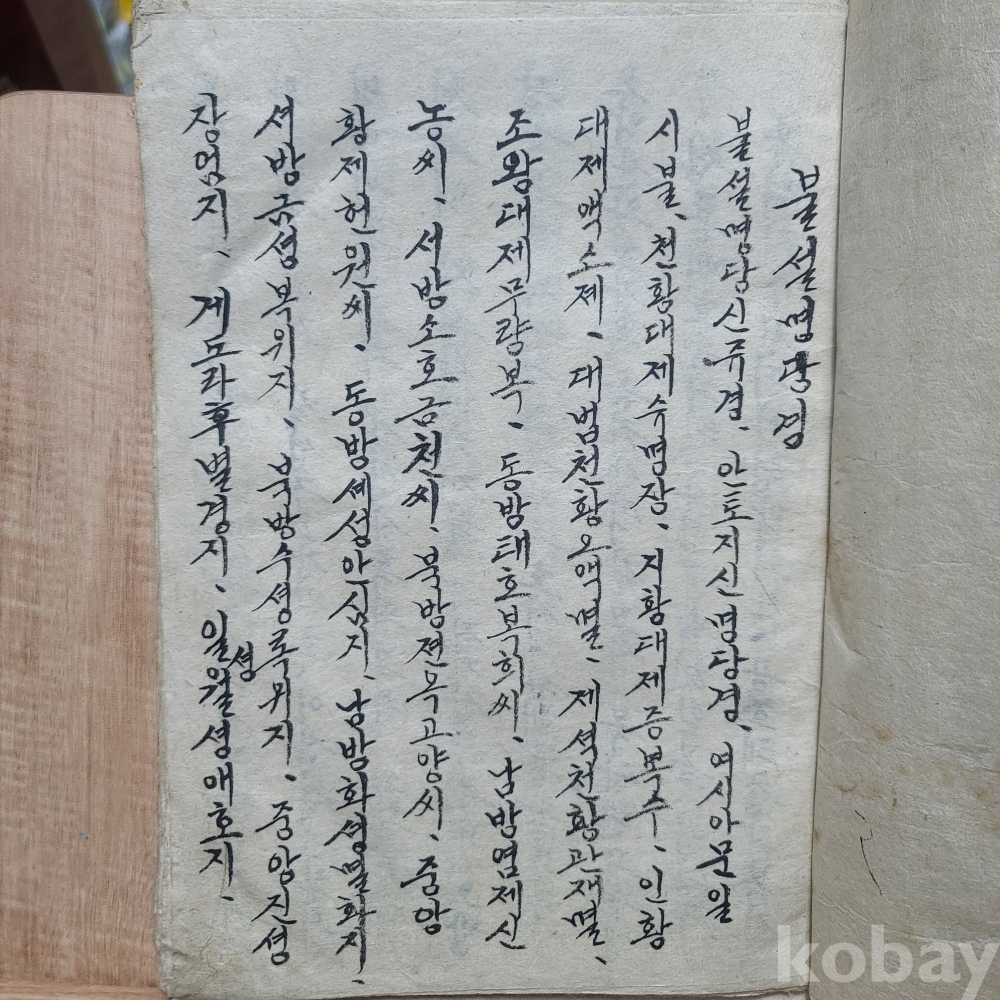 불셜명당경
불셜명당신쥬경、안토지신명당경、여시아문일
시불、천황대제수명장、지황대제증복수、인황
대제액소졔、대범천황오액멸、제셕천황관재멸、
조왕대제무량복、동방태호복희씨、남방염제신
농씨、서방소호금천씨、북방젼욱고양씨、중앙
황제헌원씨、동방셰성안심지、남방화셩멸화지、
셔방금셩복위지、북방수셩록위지、중앙진셩
장엄지、계도라후별경지、일월셩애호지、
셩
kobay